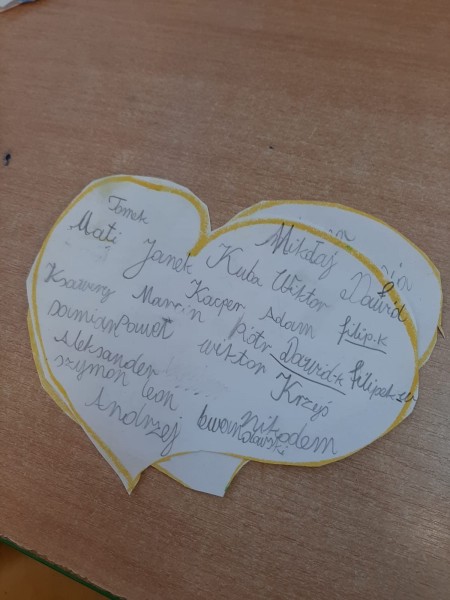 Tomek
Mati Janek Kuba Wiktor Mikołaj Dawid
Ksawery Marcin Kacper Adam filip.k
Damian Paweł piotr Dawid.k
Aleksander wiktor Krzyś
szymon leon
Andrzej nikodem